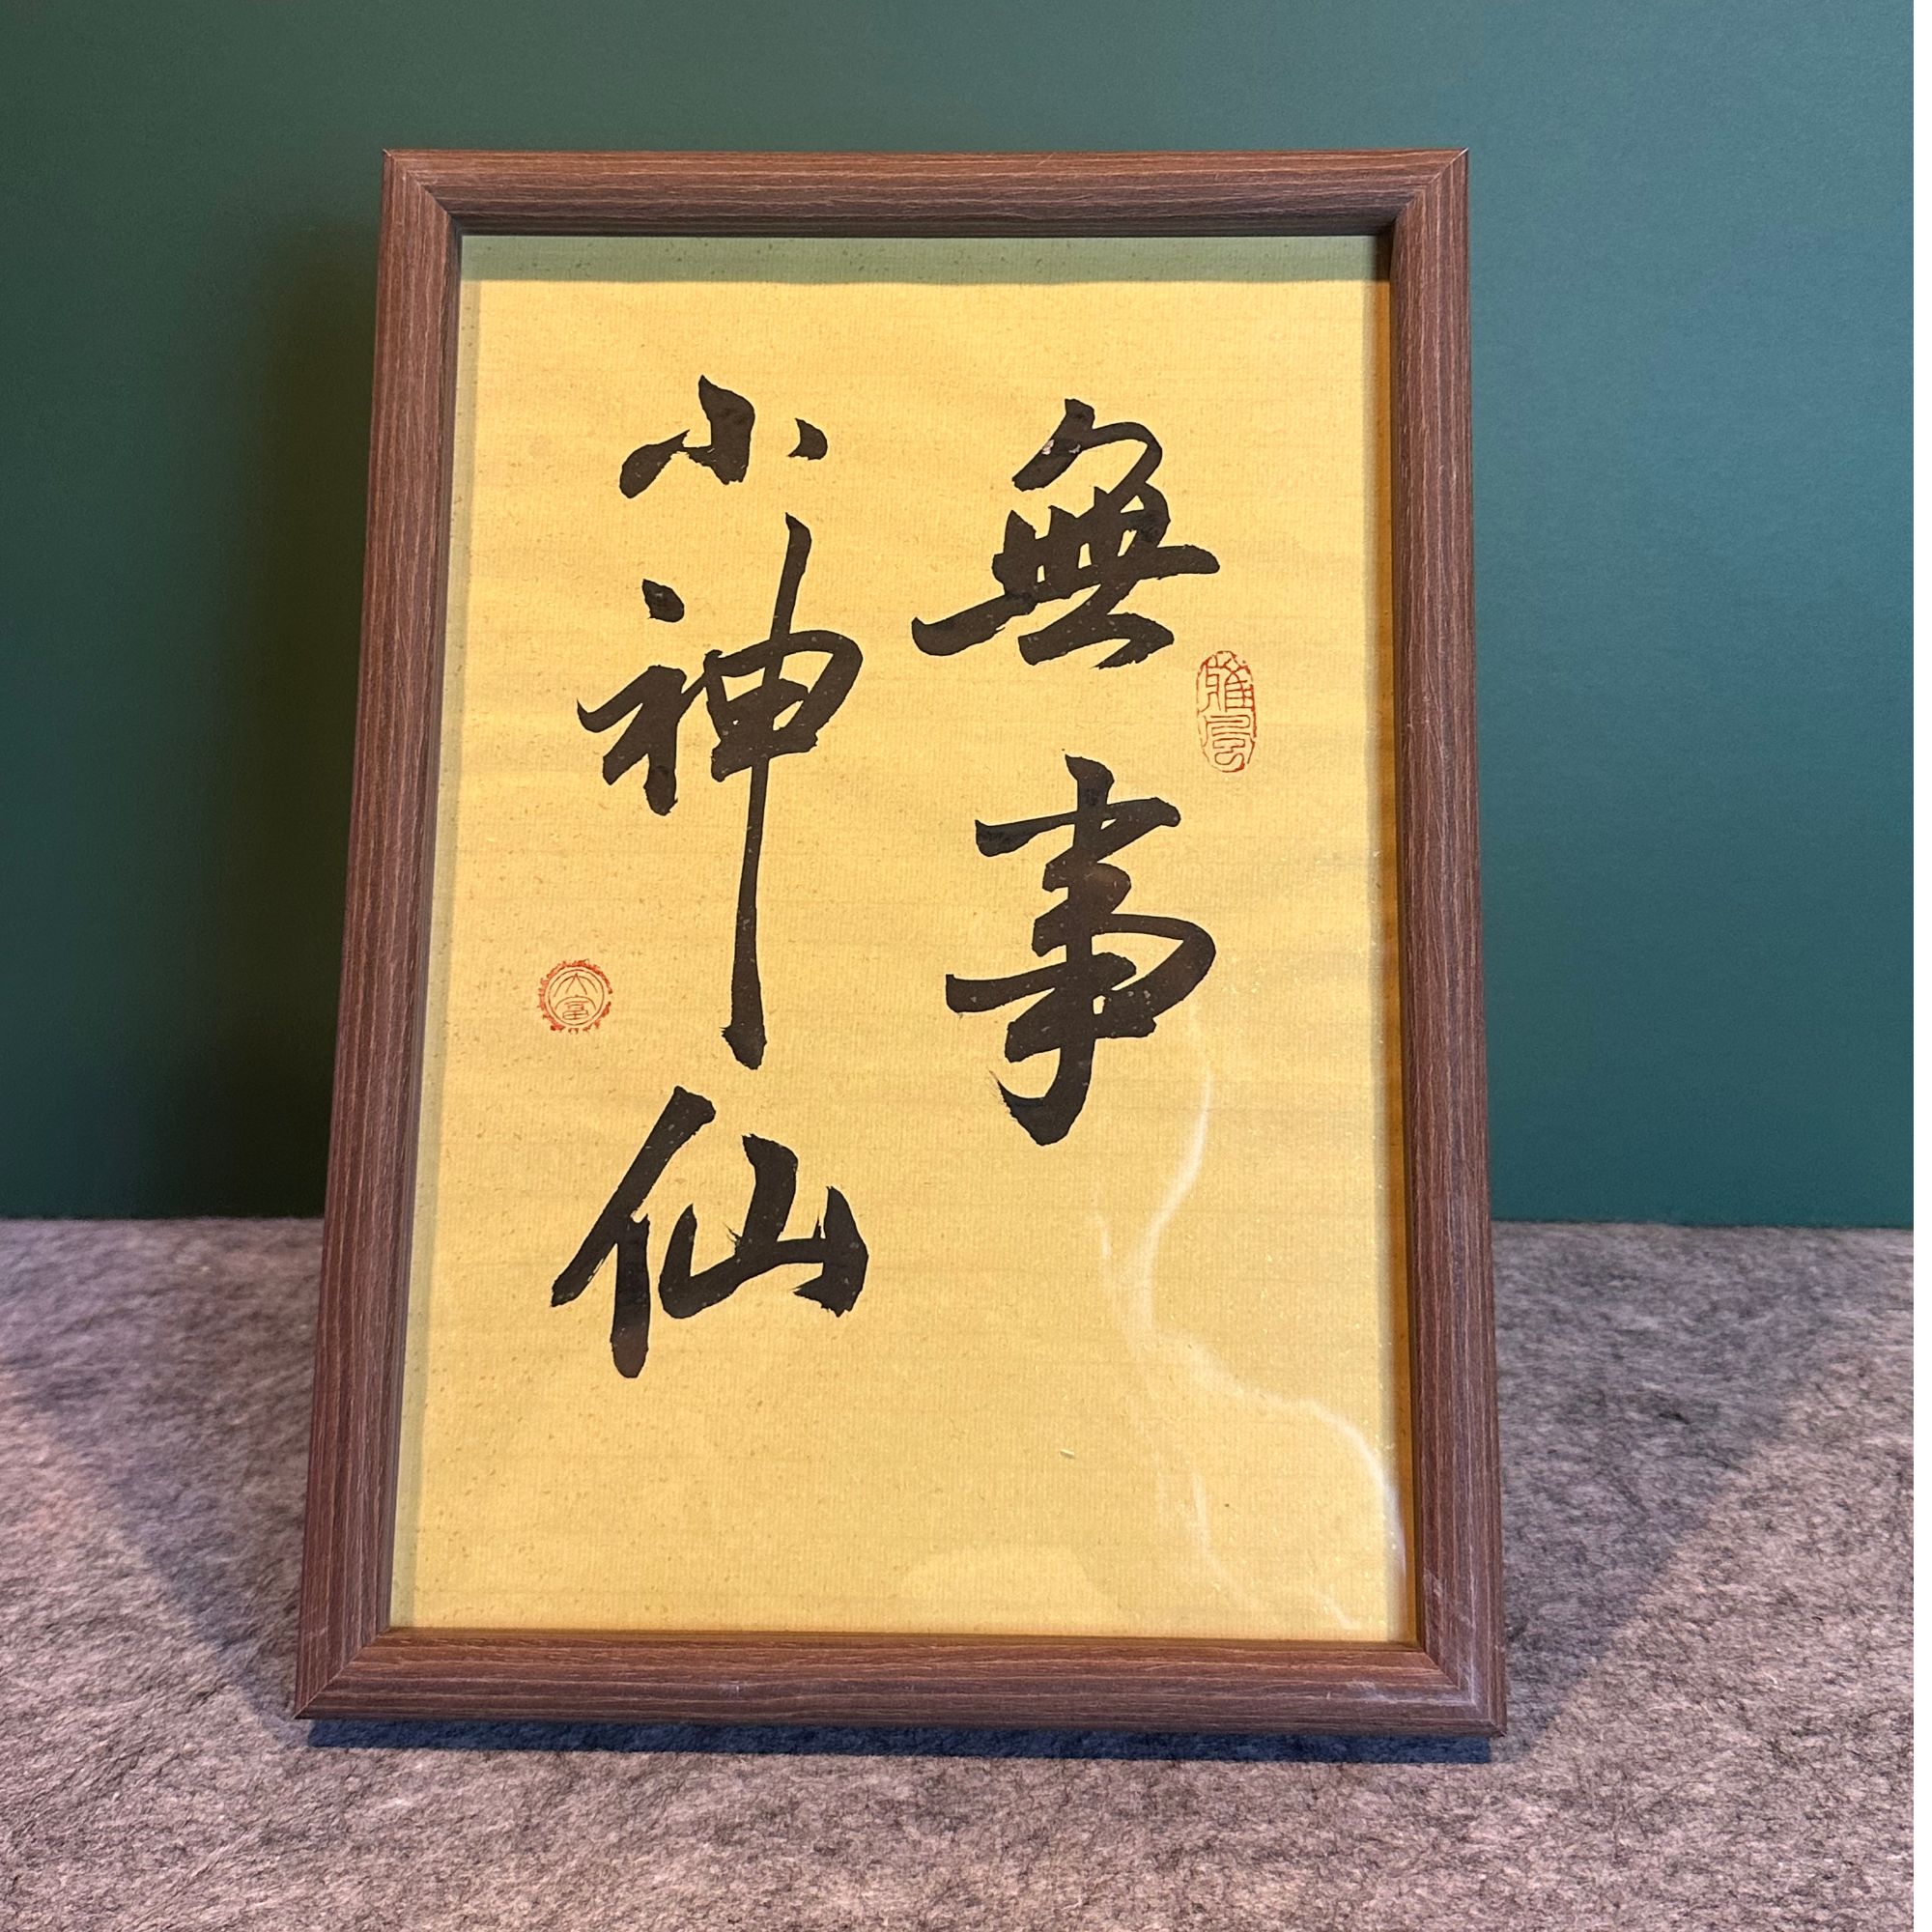 無事
小神仙